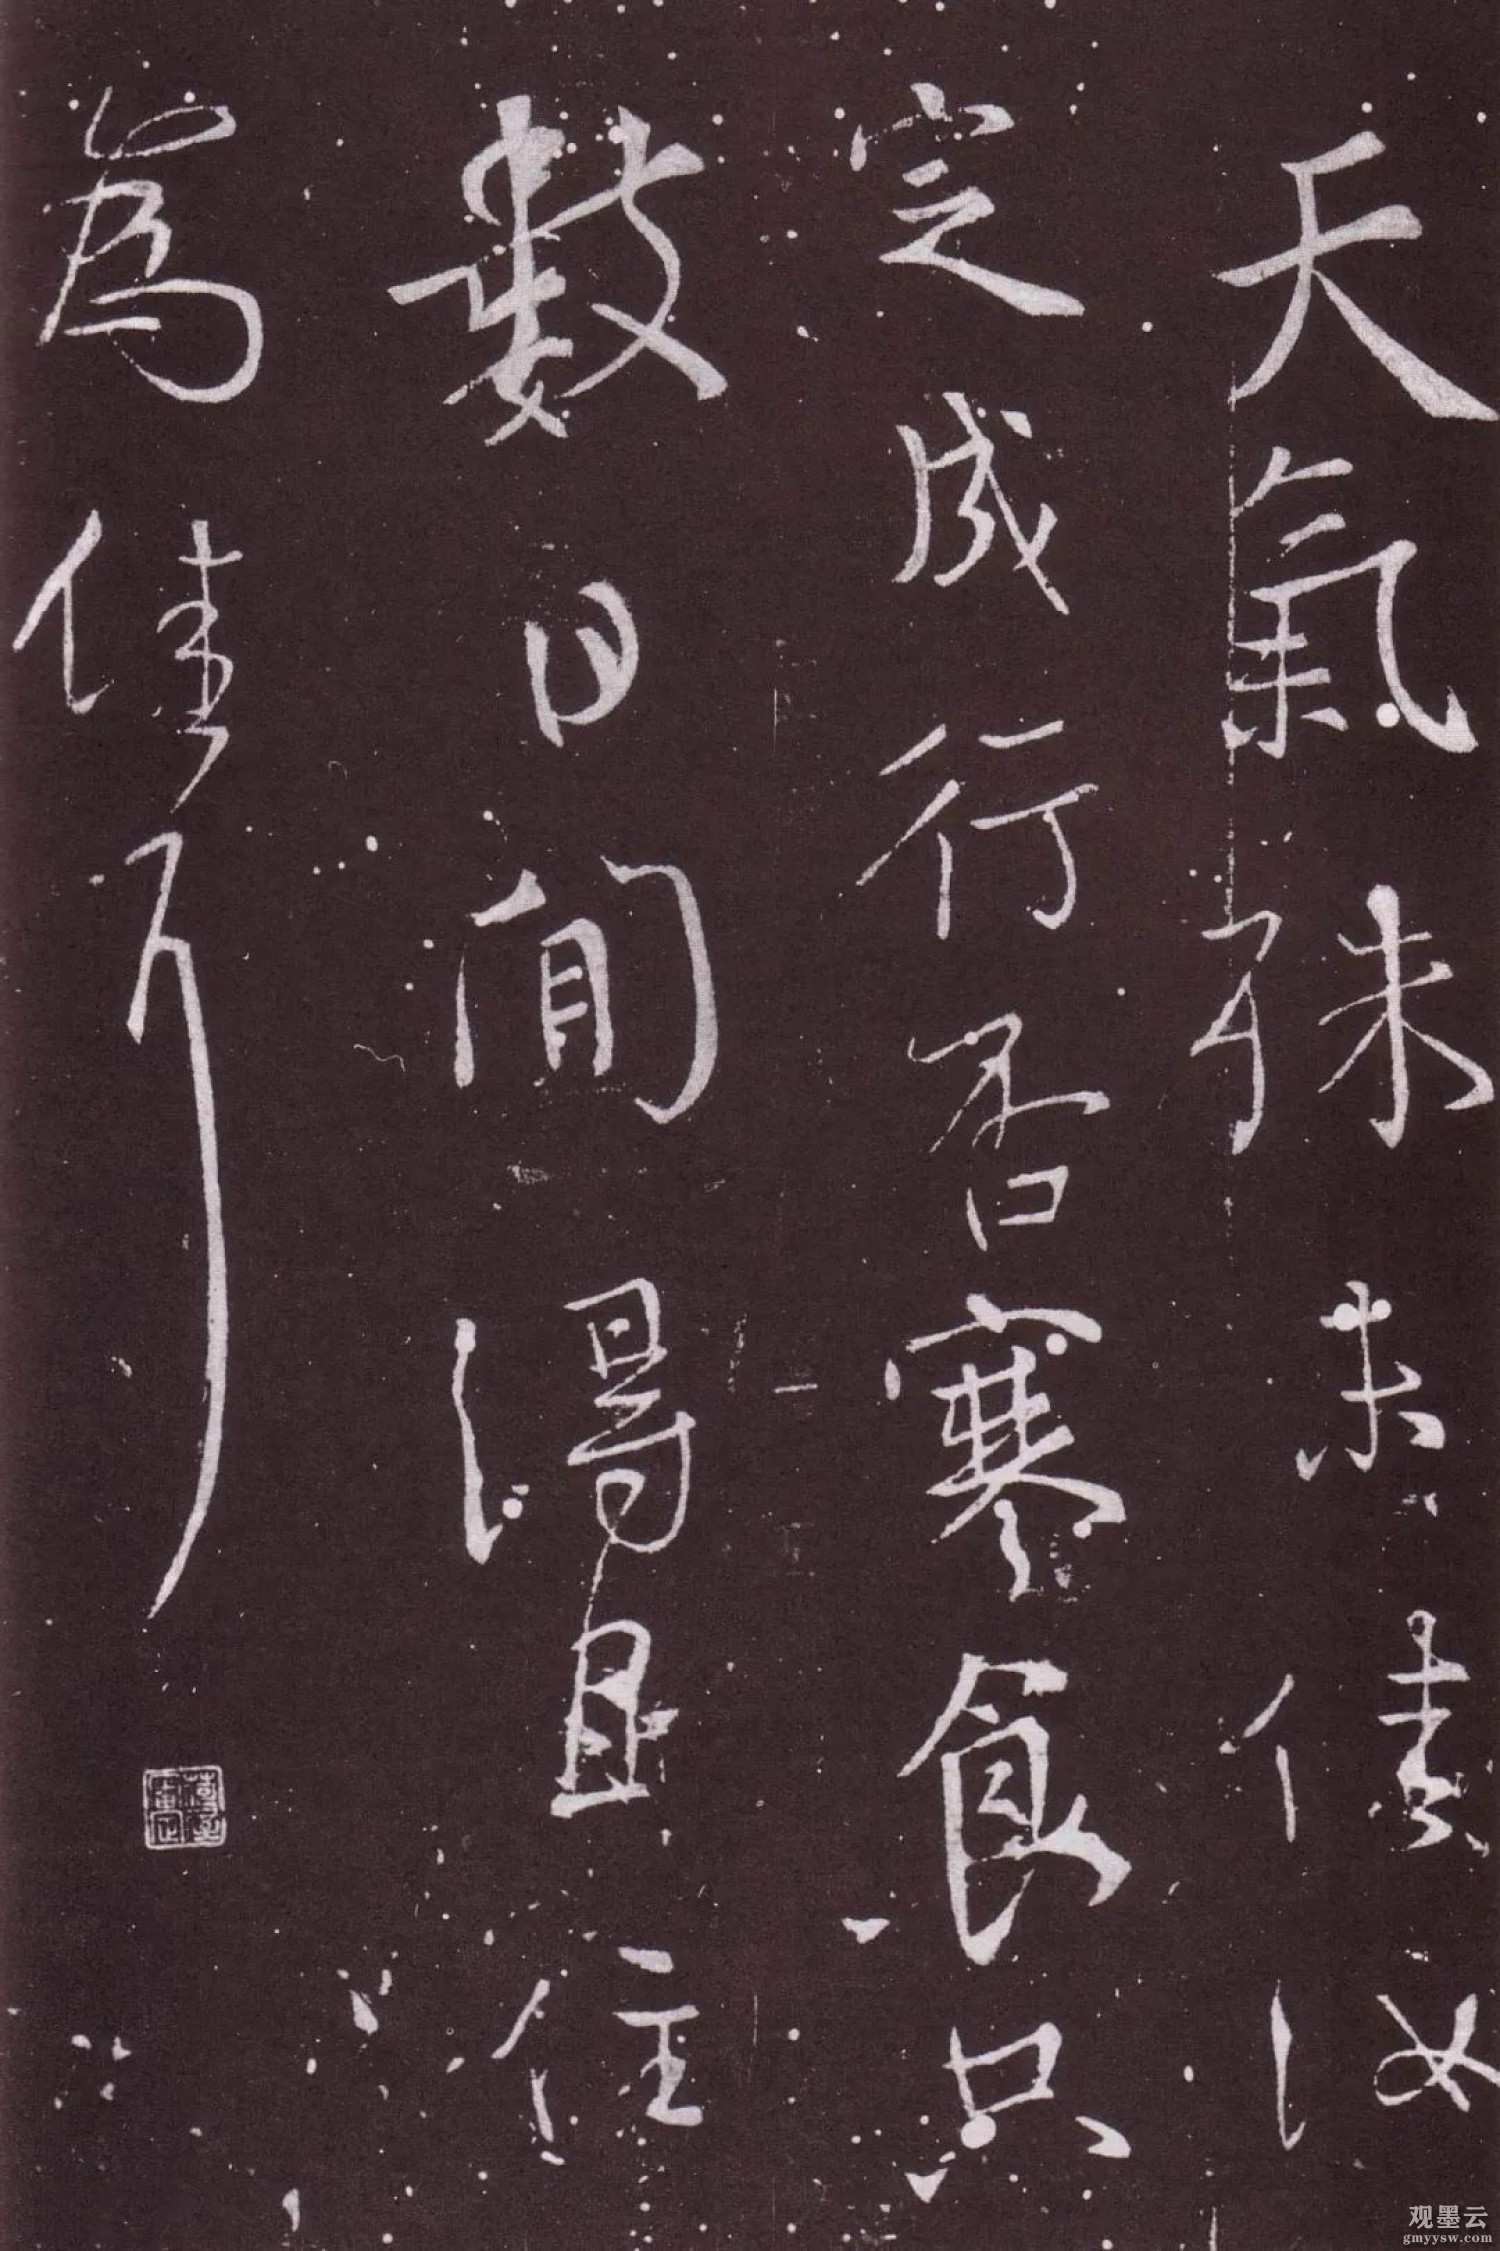 天氣殊未佳汝
定成行否寒食只
數日間得且住
為佳耳
观墨云
gmyysw.com